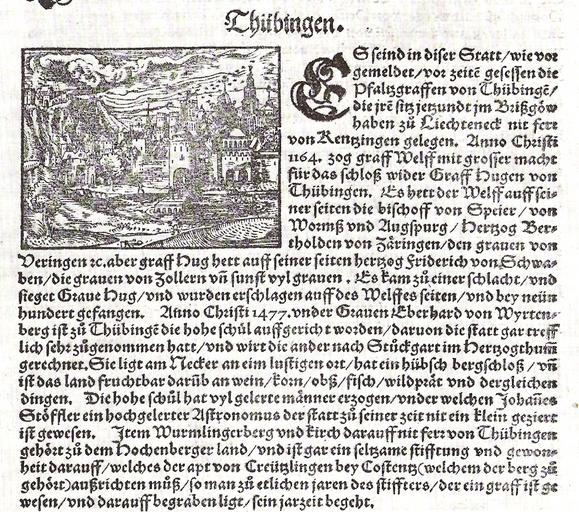 Thübingen.
ES seind in diser Statt/wie vor
gemeldet/vor zeitē gesessen die
Pfaltzgraffen von Thübingē/
die irē sitz jetzundt jm Brißgöw
haben zů Liechteneck nit ferr
von Kentzingen gelegen. Anno Christi
1164. zog graff Welff mit grosser macht
für das schloß wider Graff Hugen von
Thübingen. Es hett der Welff auff sei-
ner seiten die bischoff von Speier/von
Wormß vnd Augspurg/Hertzog Ber-
tholden von Zäringen/den grauen von
Veringen ⁊c. aber graff Hug hett auff seiner seiten hertzog Friderich von Schwa-
ben/die grauen von Zollern vñ sunst vyl grauen. Es kam zů einer schlacht/vnd
sieget Graue Hug/vnd wurden erschlagen auff des Welffes seiten/vnd bey neün
hundert gefangen. Anno Christi 1477. vnder Grauen Eberhard von Wyrten-
berg ist zů Thübingē die hohe schůl auffgericht worden/daruon die statt gar treff
lich sehr zůgenommen hatt/vnd wirt die ander nach Stůckgart im Hertzogthum̄
gerechnet. Sie ligt am Necker an eim lustigen ort/hat ein hübsch bergschloß/vñ
ist das land fruchtbar darüb an wein/korn/obß/fisch/wildprät vnd dergleichen
dingen. Die hohe schůl hat vyl gelerte männer erzogen/vnder welchen Johañes
Stöffler ein hochgelerter Astronomus der statt zů seiner zeit nit ein klein geziert
ist gewesen. Item Wurmlingerberg vnd kirch darauff nit ferr von Thübingen
gehört zů dem Hochenberger land/vnd ist gar ein seltzame stifftung vnd gewon-
heit darauff/welches der apt von Creützlingen bey Costentz (welchem der berg zů
gehört) außrichten můß/so man zů etlichen jaren des stiffters/der ein graff ist ge
wesen/vnd darauff begraben ligt/sein jarzeit begeht.